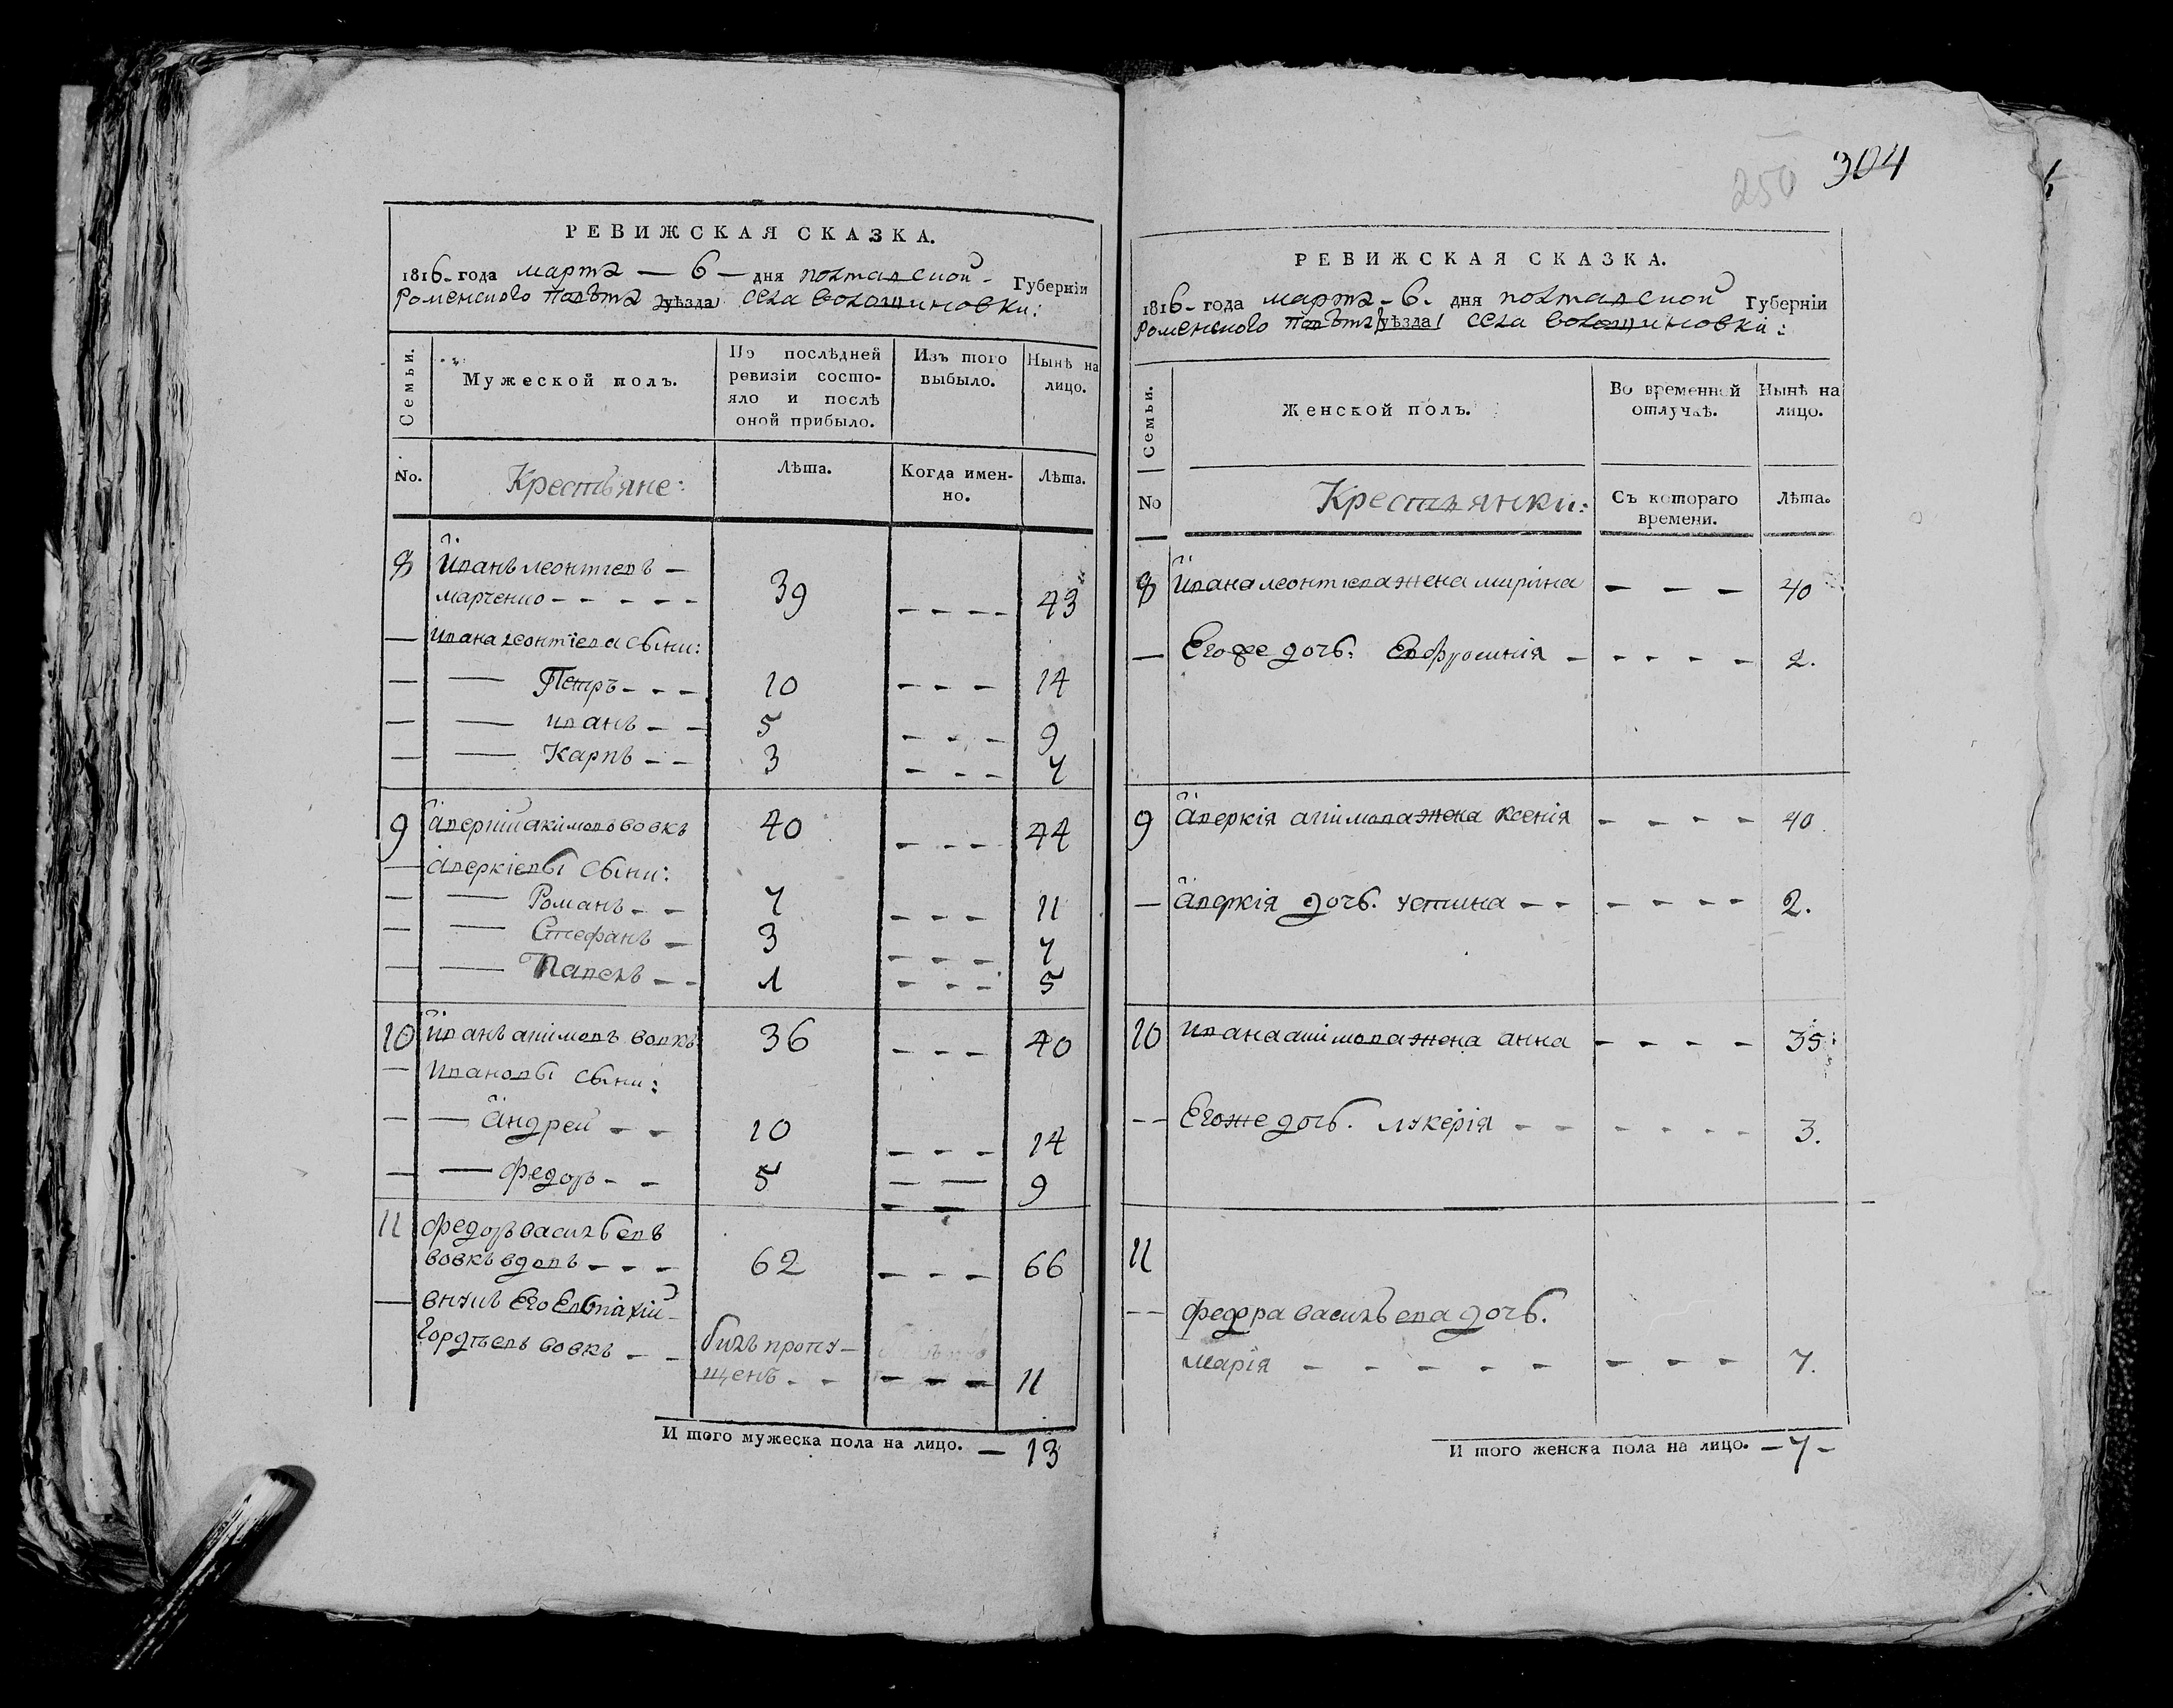 РЕВИЖСКАЯ СКАЗКА.
1816 года марта — 6 — дня полтавской Губерніи
Роменского повѣта уѣзда села волошиновки:
Семьи.
Мужеской полъ.
По послѣдней ревизіи состояло и послѣ оной прибыло.
Изъ того выбыло.
Нынѣ на лицо.
No.
Крестьяне:
Лѣта.
Когда именно.
Лѣта.
8 Иванъ леонтіевъ —
марченко - - - - - 39 - - - - 43
— ивана леонтіева сыни:
— — Петръ - - - 10 - - - 14
— — иванъ - - 5 - - - 9
— — Карпъ - - 3 - - - 7
9 аверкій акимовъ вовкъ 40 - - - 44
— аверкіевы сыни:
— — Романъ - - 7 - - - 11
— — Стефанъ — 3 - - - 7
— — Павелъ - - 1 - - - 5
10 Иванъ акимовъ вовкъ 36 - - - 40
— Ивановы сыни:
— — андрей - - 10 - - - 14
— — федоръ - - 5 — — 9
11 федоръ васильевъ
вовкъ вдовъ - - - 62 - - - 66
— внукъ Его Евпатій
Гордѣевъ вовкъ - - билъ пропу-
щенъ - - - - - 11
И того мужеска пола на лицо. — 13
250 304
РЕВИЖСКАЯ СКАЗКА.
1816 года марта - 6 - дня полтавской Губерніи
Роменского повѣта уѣзда села волошиновки:
Семьи.
Женской полъ.
Во временной отлучкѣ.
Нынѣ на лицо.
No
Крестьянки:
Съ котораго времени.
Лѣта.
8 Ивана леонтіева жена марина — — — 40
— Его же дочь: Евфросинія - - - - - 2.
9 аверкія акимова жена ксенія - - - - 40
— аверкія дочь. устина - - - - - - 2.
10 ивана акимова жена анна - - - - 35
-- Его же дочь. лукерія - - - - - - 3.
11
-- федора васильева дочь.
марія - - - - - - - - 7.
И того женска пола на лицо. — 7 -